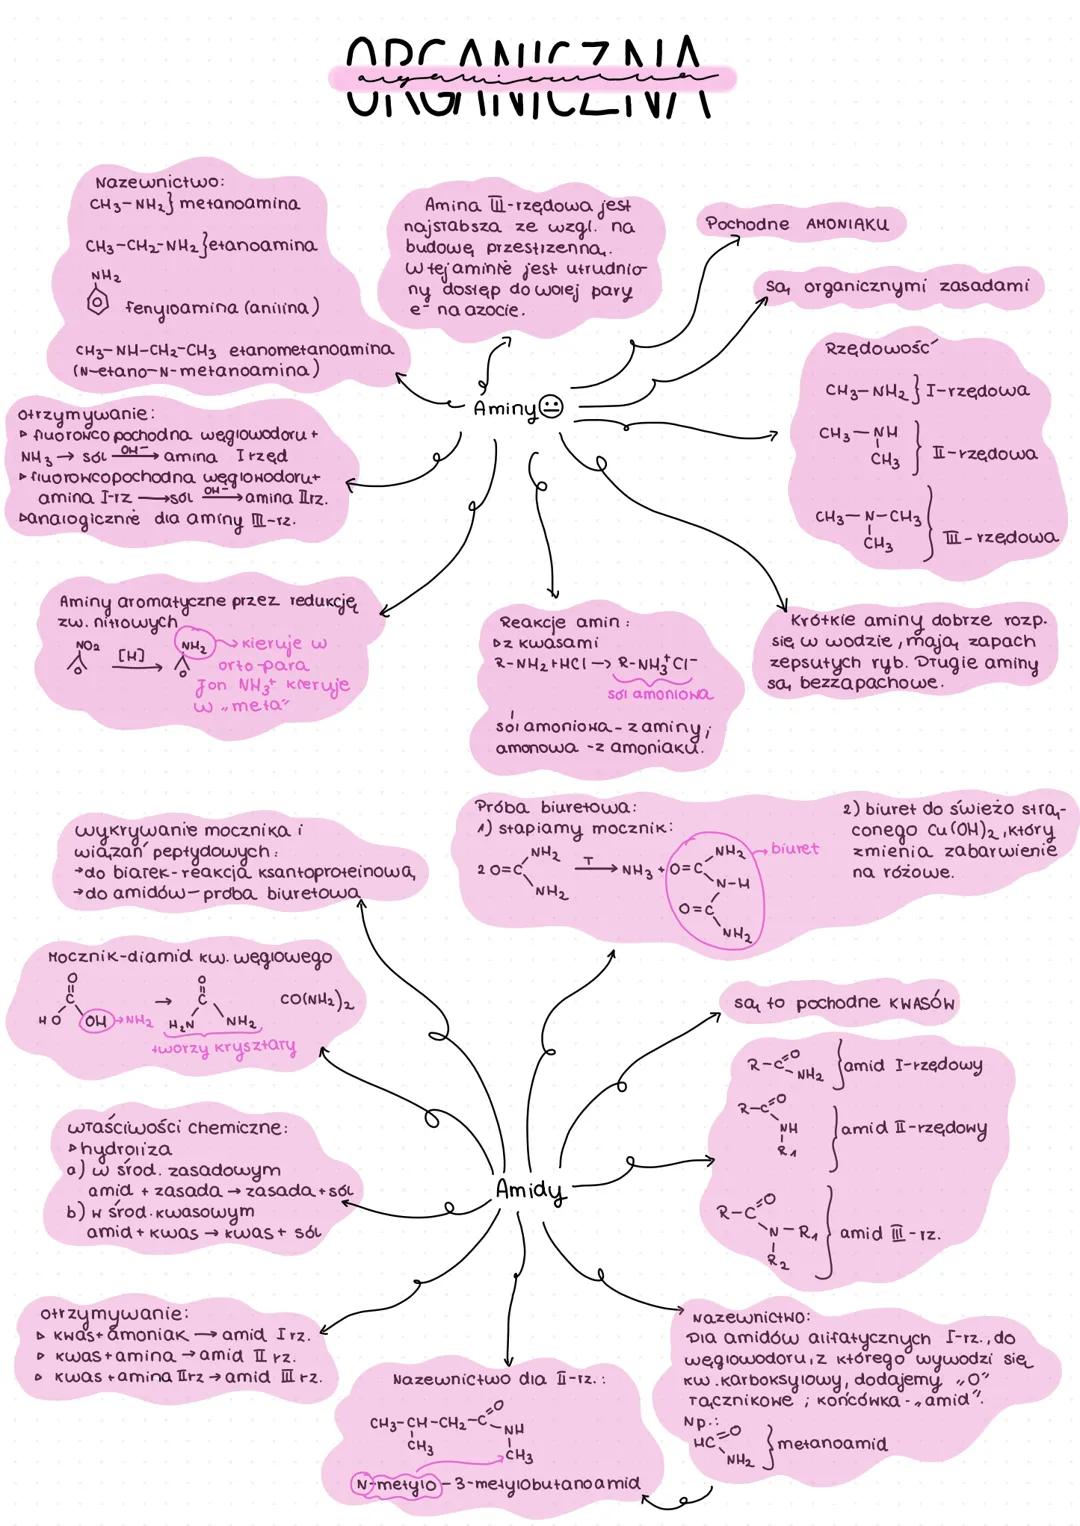 ORGANICZNA
organiczna
Nazewnictwo:
CH3-NH2} metanoamina
CH3-CH2-NH2}etanoamina
NH2
fenyloamina (anilina)
CH3-NH-CH2-CH3 etanometanoamina
(N-etano-N-metanoamina)
Amina III-rzędowa jest
najsłabsza ze wzgl. na
budowę przestrzenną.
W tej aminie jest utrudnio-
ny dostęp do wolej pary
e⁻ na azocie.
Pochodne AMONIAKU
są organicznymi zasadami
Rzędowość
CH3-NH2} I-rzędowa
CH3-NH
CH3
II-rzędowa
CH3-N-CH3
CH3
III-rzędowa
Aminy
otrzymywanie:
▹ fluorowco pochodna węglowodoru+
NH3 → sól OH⁻→ amina I rzęd
▹ fluorowcopochodna węglowodoru+
amina I-rz → sól OH⁻→ amina II rz.
▹analogicznie dla aminy III-rz.
Aminy aromatyczne przez redukcję
zw. nitrowych
NO2 [H]→ NH2 → kieruje w
orto-para
Jon NH3⁺ kieruje
w „meta”
Reakcje amin:
▹z kwasami
R-NH2+HCl → R-NH3⁺Cl⁻
sól amoniowa
sól amoniowa - z aminy;
amonowa - z amoniaku.
Krótkie aminy dobrze rozp.
się w wodzie, mają zapach
zepsutych ryb. Długie aminy
są bezzapachowe.
wykrywanie mocznika i
wiązań peptydowych:
→do białek-reakcja ksantoproteinowa,
→do amidów-próba biuretowa
Próba biuretowa:
1) stapiamy mocznik:
2 O=C NH2 NH2 T→ NH3 + O=C NH2 N-H O=C NH2 → biuret
2) biuret do świeżo strą-
conego Cu(OH)2, który
zmienia zabarwienie
na różowe.
Mocznik-diamid kw. węglowego
O C HO OH→NH2 → O C H2N NH2 CO(NH2)2
tworzy kryształy
są to pochodne KWASÓW
R-C=O NH2 }amid I-rzędowy
R-C=O NH R1 }amid II-rzędowy
R-C=O N-R1 R2 } amid III-rz.
właściwości chemiczne:
▹hydroliza
a) w środ. zasadowym
amid + zasada → zasada + sól
b) w środ. kwasowym
amid + kwas → kwas + sól
Amidy
otrzymywanie:
▹ kwas+amoniak → amid I rz.
▹ kwas+amina → amid II rz.
▹ kwas +amina II rz → amid III rz.
Nazewnictwo dla II-rz.:
CH3-CH-CH2-C=O
CH3 NH
CH3
N-metylo-3-metylobutanoamid
Nazewnictwo:
Dla amidów alifatycznych I-rz., do
węglowodoru, z którego wywodzi się
kw. karboksylowy, dodajemy „O”
łącznikowe; końcówka-„amid”.
Np.:
HC=O NH2 }metanoamid